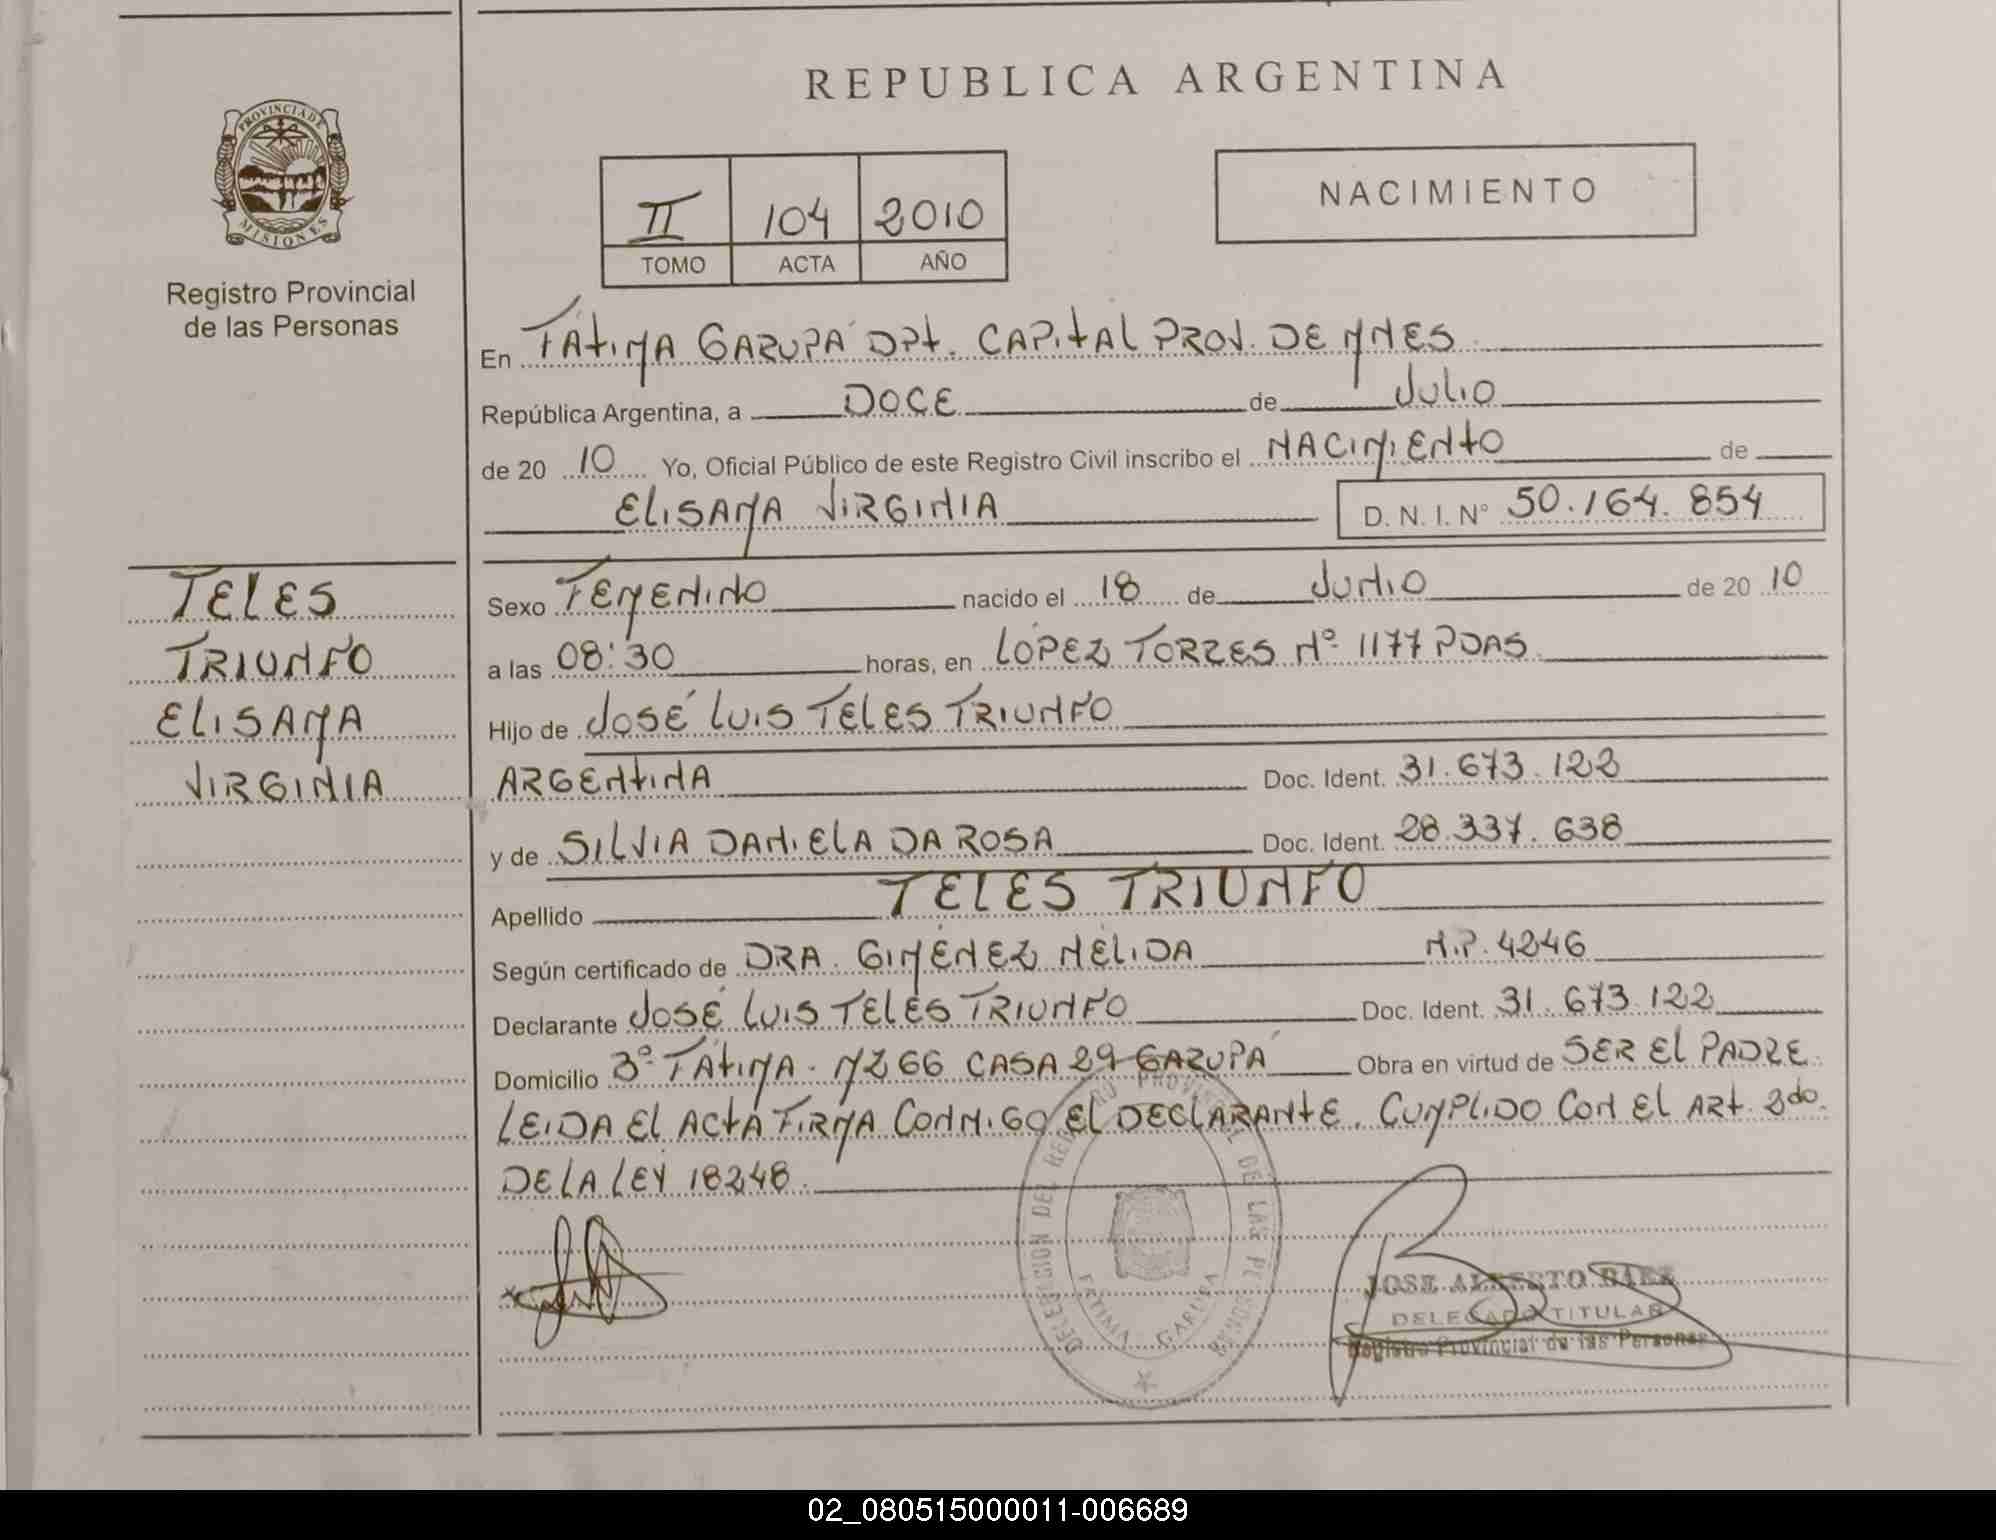 REPUBLICA ARGENTINA
PROVINCIA DE
MISIONES
Registro Provincial
de las Personas
II 104 2010
TOMO ACTA AÑO
NACIMIENTO
En FÁTIMA GARUPÁ DPT. CAPITAL PROV. DE MNES
República Argentina, a DOCE de JULIO
de 20 10 Yo, Oficial Público de este Registro Civil inscribo el NACIMIENTO de
ELISAMA VIRGINIA D. N. I. N° 50.164.854
TELES
TRIUNFO
ELISAMA
VIRGINIA
Sexo FEMENINO nacido el 18 de JUNIO de 20 10
a las 08:30 horas, en LÓPEZ TORRES Nº 1177 PDAS
Hijo de JOSÉ LUIS TELES TRIUNFO
ARGENTINA Doc. Ident. 31.673.122
y de SILVIA DANIELA DA ROSA Doc. Ident. 28.337.638
Apellido TELES TRIUNFO
Según certificado de DRA. GIMÉNEZ NÉLIDA M.P. 4246
Declarante JOSÉ LUIS TELES TRIUNFO Doc. Ident. 31.673.122
Domicilio Bº FÁTIMA. MZ 66 CASA 29 GARUPÁ Obra en virtud de SER EL PADRE.
LEIDA EL ACTA FIRMA CONMIGO EL DECLARANTE. CUMPLIDO CON EL ART. 2do.
DE LA LEY 18248.
DELEGACION DEL REGISTRO PROVINCIAL DE LAS PERSONAS
FATIMA - GARUPA
JOSE ALBERTO BAEZ
DELEGADO TITULAR
Registro Provincial de las Personas
02_080515000011-006689